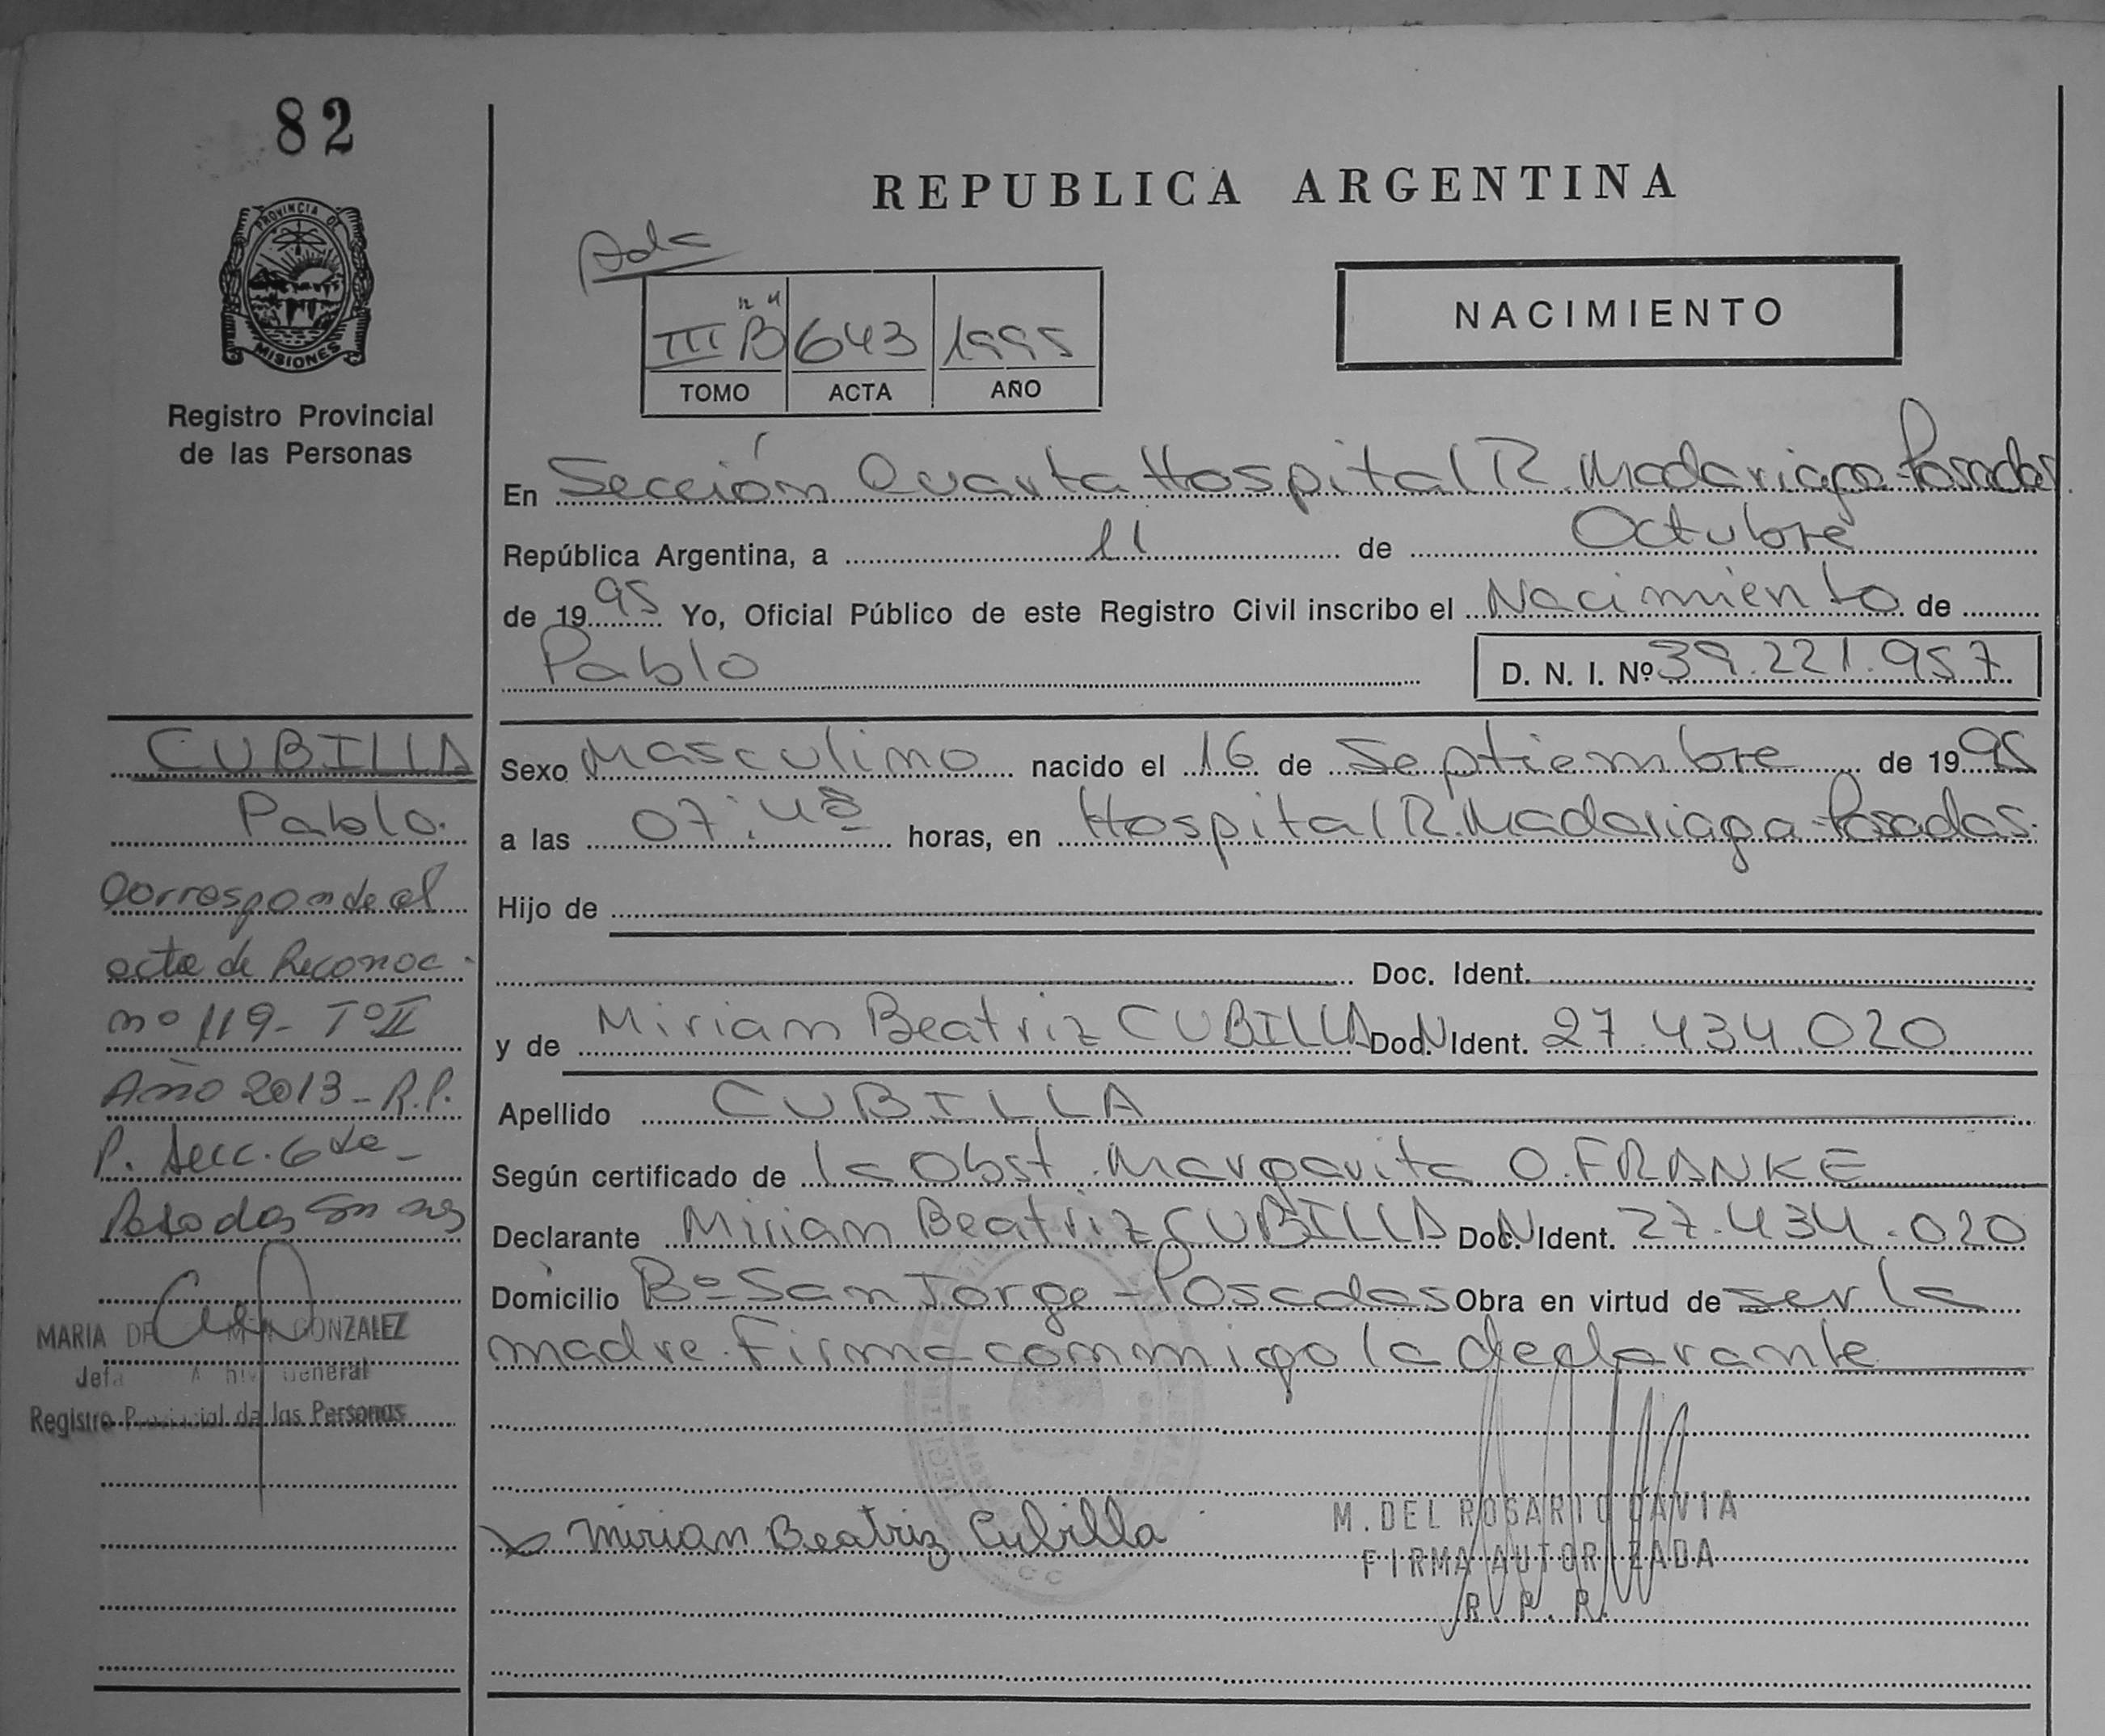 82
PROVINCIA DE
MISIONES
Registro Provincial
de las Personas
REPUBLICA ARGENTINA
NACIMIENTO
III "B" 643 1995
TOMO ACTA AÑO
En Sección Cuarta Hospital R. Madariaga-Posadas
República Argentina, a 11 de Octubre
de 1995 Yo, Oficial Público de este Registro Civil inscribo el Nacimiento de
Pablo D. N. I. Nº 39.221.957
Sexo Masculino nacido el 16 de Septiembre de 1995
a las 07:48 horas, en Hospital R. Madariaga-Posadas.
Hijo de
Doc. Ident.
y de Mirian Beatriz CUBILLA Doc.N Ident. 27.434.020
Apellido CUBILLA
Según certificado de la Obst. Margarita O. FRANKE
Declarante Mirian Beatriz CUBILLA Doc.N Ident. 27.434.020
Domicilio Bº San Jorge - Posadas Obra en virtud de ser la
madre. Firma conmigo la declarante
Mirian Beatriz Cubilla
M. DEL ROSARIO DAVIA
FIRMA AUTORIZADA
R. P. P.
CUBILLA
Pablo.
Corresponde al
acta de Reconoc.
nº 119- Tº II
Año 2013- R.P.
P. Secc. 6ta-
Posadas
MARIA DEL CARMEN GONZALEZ
Jefa General
Registro Provincial de las Personas